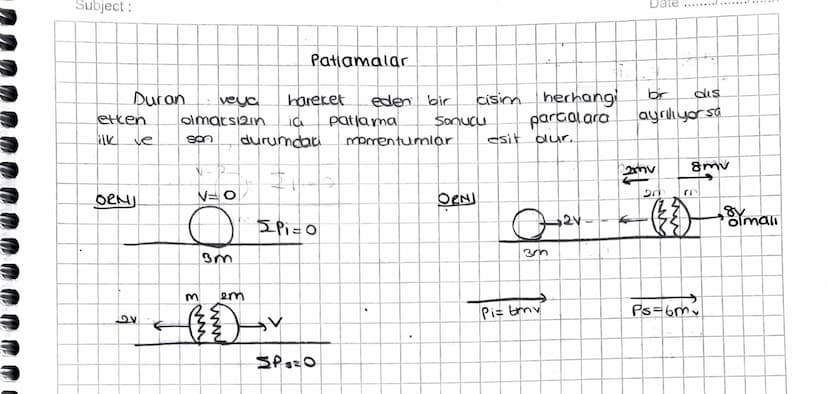 Subject :
Date
Patlamalar
Duran veya hareket eden bir cisim herhangi bir dıs
etken olmaksızın iç patlama sonucu parcalara ayrılıyorsa
ilk ve son durumdaki momentumlar esit olur.
ÖRN
V=0
ΣPi=0
3m
m 2m
2v
V
ΣPs=0
ÖRN
2v
3m
2mv 8mv
2m m
8v
olmalı
Pi=6mv
Ps=6mv